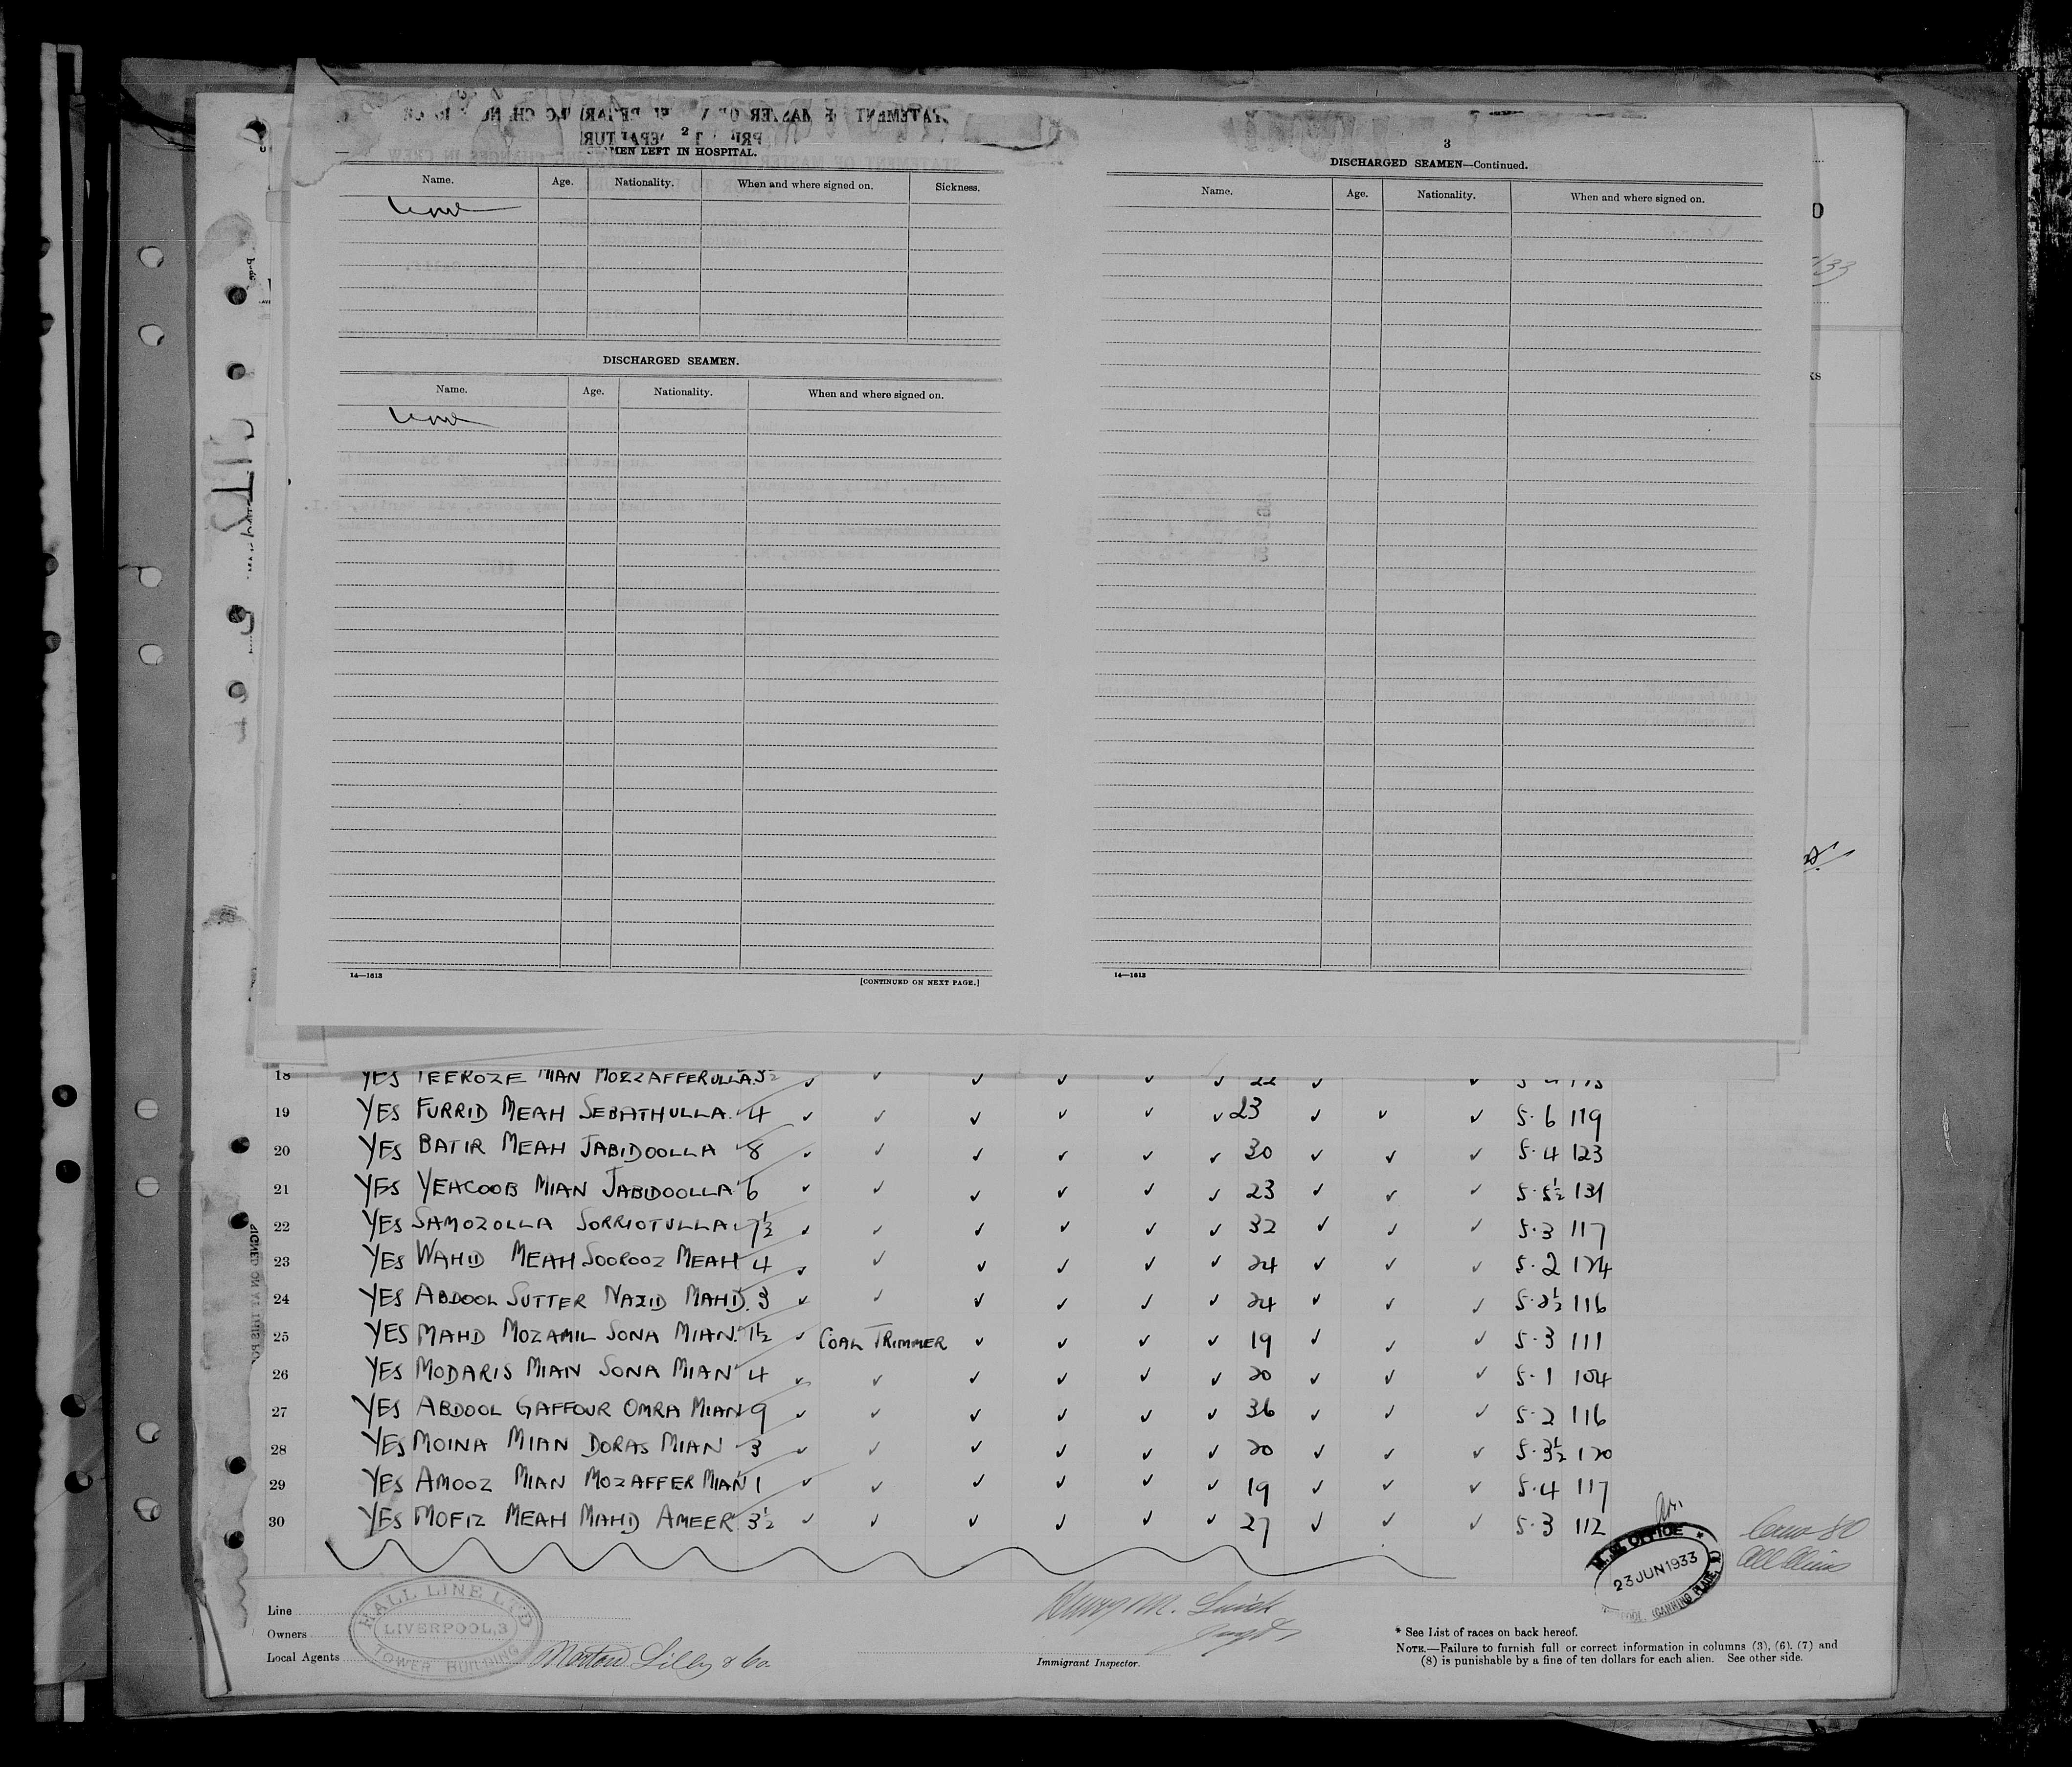 2
MEN LEFT IN HOSPITAL.
Name. Age. Nationality. When and where signed on. Sickness.
DISCHARGED SEAMEN.
Name. Age. Nationality. When and where signed on.
14—1613 [CONTINUED ON NEXT PAGE.]
3
DISCHARGED SEAMEN—Continued.
Name. Age. Nationality. When and where signed on.
14—1613
18 YES MIAN MOZZAFFERULLA 22
19 YES FURRID MEAH SEBATHULLA. 4 ✓ ✓ ✓ ✓ ✓ ✓ 23 ✓ ✓ ✓ 5.6 119
20 YES BATIR MEAH JABIDOOLLA 8 ✓ ✓ ✓ ✓ ✓ ✓ 30 ✓ ✓ ✓ 5.4 123
21 YES YEHCOOB MIAN JABIDOOLLA 6 ✓ ✓ ✓ ✓ ✓ ✓ 23 ✓ ✓ ✓ 5.5½ 131
22 YES SAMOZOLLA SORRIOTULLA 7½ ✓ ✓ ✓ ✓ ✓ ✓ 32 ✓ ✓ ✓ 5.3 117
23 YES WAHID MEAH SOOROOZ MEAH 4 ✓ ✓ ✓ ✓ ✓ ✓ 24 ✓ ✓ ✓ 5.2 124
24 YES ABDOOL SUTTER NAZID MAHD. 3 ✓ ✓ ✓ ✓ ✓ ✓ 24 ✓ ✓ ✓ 5.2½ 116
25 YES MAHD MOZAMIL SONA MIAN. 1½ ✓ COAL TRIMMER ✓ ✓ ✓ ✓ 19 ✓ ✓ ✓ 5.3 111
26 YES MODARIS MIAN SONA MIAN 4 ✓ ✓ ✓ ✓ ✓ ✓ 20 ✓ ✓ ✓ 5.1 104
27 YES ABDOOL GAFFOUR OMRA MIAN 9 ✓ ✓ ✓ ✓ ✓ ✓ 36 ✓ ✓ ✓ 5.2 116
28 YES MOINA MIAN DORAS MIAN 3 ✓ ✓ ✓ ✓ ✓ ✓ 20 ✓ ✓ ✓ 5.3½ 120
29 YES AMOOZ MIAN MOZAFFER MIAN 1 ✓ ✓ ✓ ✓ ✓ ✓ 19 ✓ ✓ ✓ 5.4 117
30 YES MOFIZ MEAH MAHD AMEER 3½ ✓ ✓ ✓ ✓ ✓ ✓ 27 ✓ ✓ ✓ 5.3 112
M.M. OFFICE
23 JUN 1933
CANNING PLACE
Line
Owners
Local Agents Morton Lilly & Co.
HALL LINE LTD
LIVERPOOL,3
TOWER BUILDING
Immigrant Inspector.
* See List of races on back hereof.
NOTE.—Failure to furnish full or correct information in columns (3), (6), (7) and
(8) is punishable by a fine of ten dollars for each alien. See other side.